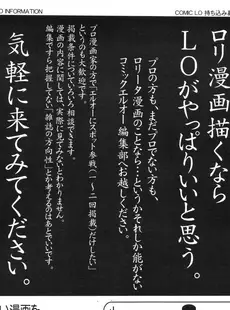 INFORMATION
COMIC LO 持ち込み
ロリ漫画描くなら
LOがやっぱりいいと思う。
プロの方も、まだプロでない方も、
ロリータ漫画のことなら…というかそれしか能がない
コミックエルオー編集部へお越しください。
プロ漫画家の方で「エルオーにスポット参戦(一〜二回掲載)だけしたい」
というのも大歓迎です。
掲載条件についていろいろ相談できます。
漫画の内容に関しては、実際に見てみないとわかりません。
編集ですら把握してない「雑誌の方向性」とか考えるのはあとでいいです。
気軽に来てみてください。